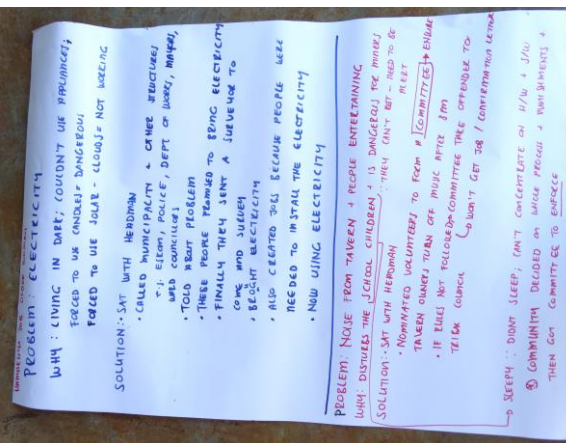 PROBLEM: ELECTRICITY
WHY: LIVING IN DARK; COULDN'T USE APPLIANCES;
FORCED TO USE CANDLES = DANGEROUS
FORCED TO USE SOLAR - CLOUDS = NOT WORKING
SOLUTION: • SAT WITH HEADMAN
• CALLED MUNICIPALITY + OTHER STRUCTURES
e.g. ESKOM, POLICE, DEPT OF WORKS, MAYORS,
WARD COUNCILLORS
• TOLD ABOUT PROBLEM
• THESE PEOPLE PROMISED TO BRING ELECTRICITY
• FINALLY THEY SENT A SURVEYOR TO
COME AND SURVEY
• BROUGHT ELECTRICITY
• ALSO CREATED JOBS BECAUSE PEOPLE WERE
NEEDED TO INSTALL THE ELECTRICITY
• NOW USING ELECTRICITY
PROBLEM: NOISE FROM TAVERN + PEOPLE ENTERTAINING
WHY: DISTURBS THE SCHOOL CHILDREN + IS DANGEROUS FOR MINERS
∴ THEY CAN'T REST - NEED TO BE
ALERT
SOLUTION: • SAT WITH HEADMAN
• NOMINATED VOLUNTEERS TO FORM A COMMITTEE → ENSURE
TAVERN OWNERS TURN OFF MUSIC AFTER 8PM
• IF RULES NOT FOLLOWED → COMMITTEE TAKE OFFENDER TO
TRIBAL COUNCIL
WON'T GET JOB / CONFIRMATION LETTER
→ SLEEPY ∵ DIDNT SLEEP; CAN'T CONCENTRATE ON H/W + S/W
COMMUNITY DECIDED ON WHOLE PROCESS + PUNISHMENTS +
THEN GOT COMMITTEE TO ENFORCE